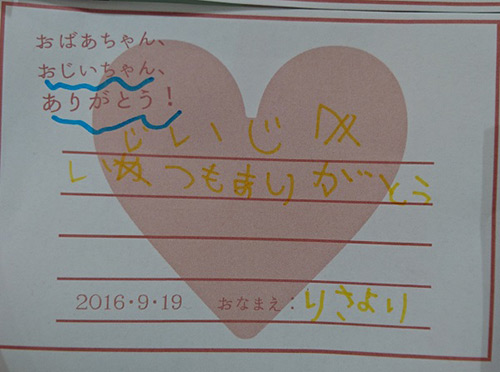 おばあちゃん、
おじいちゃん、
ありがとう！
じいじ
いつもありがとう
2016・9・19 おなまえ：りさより